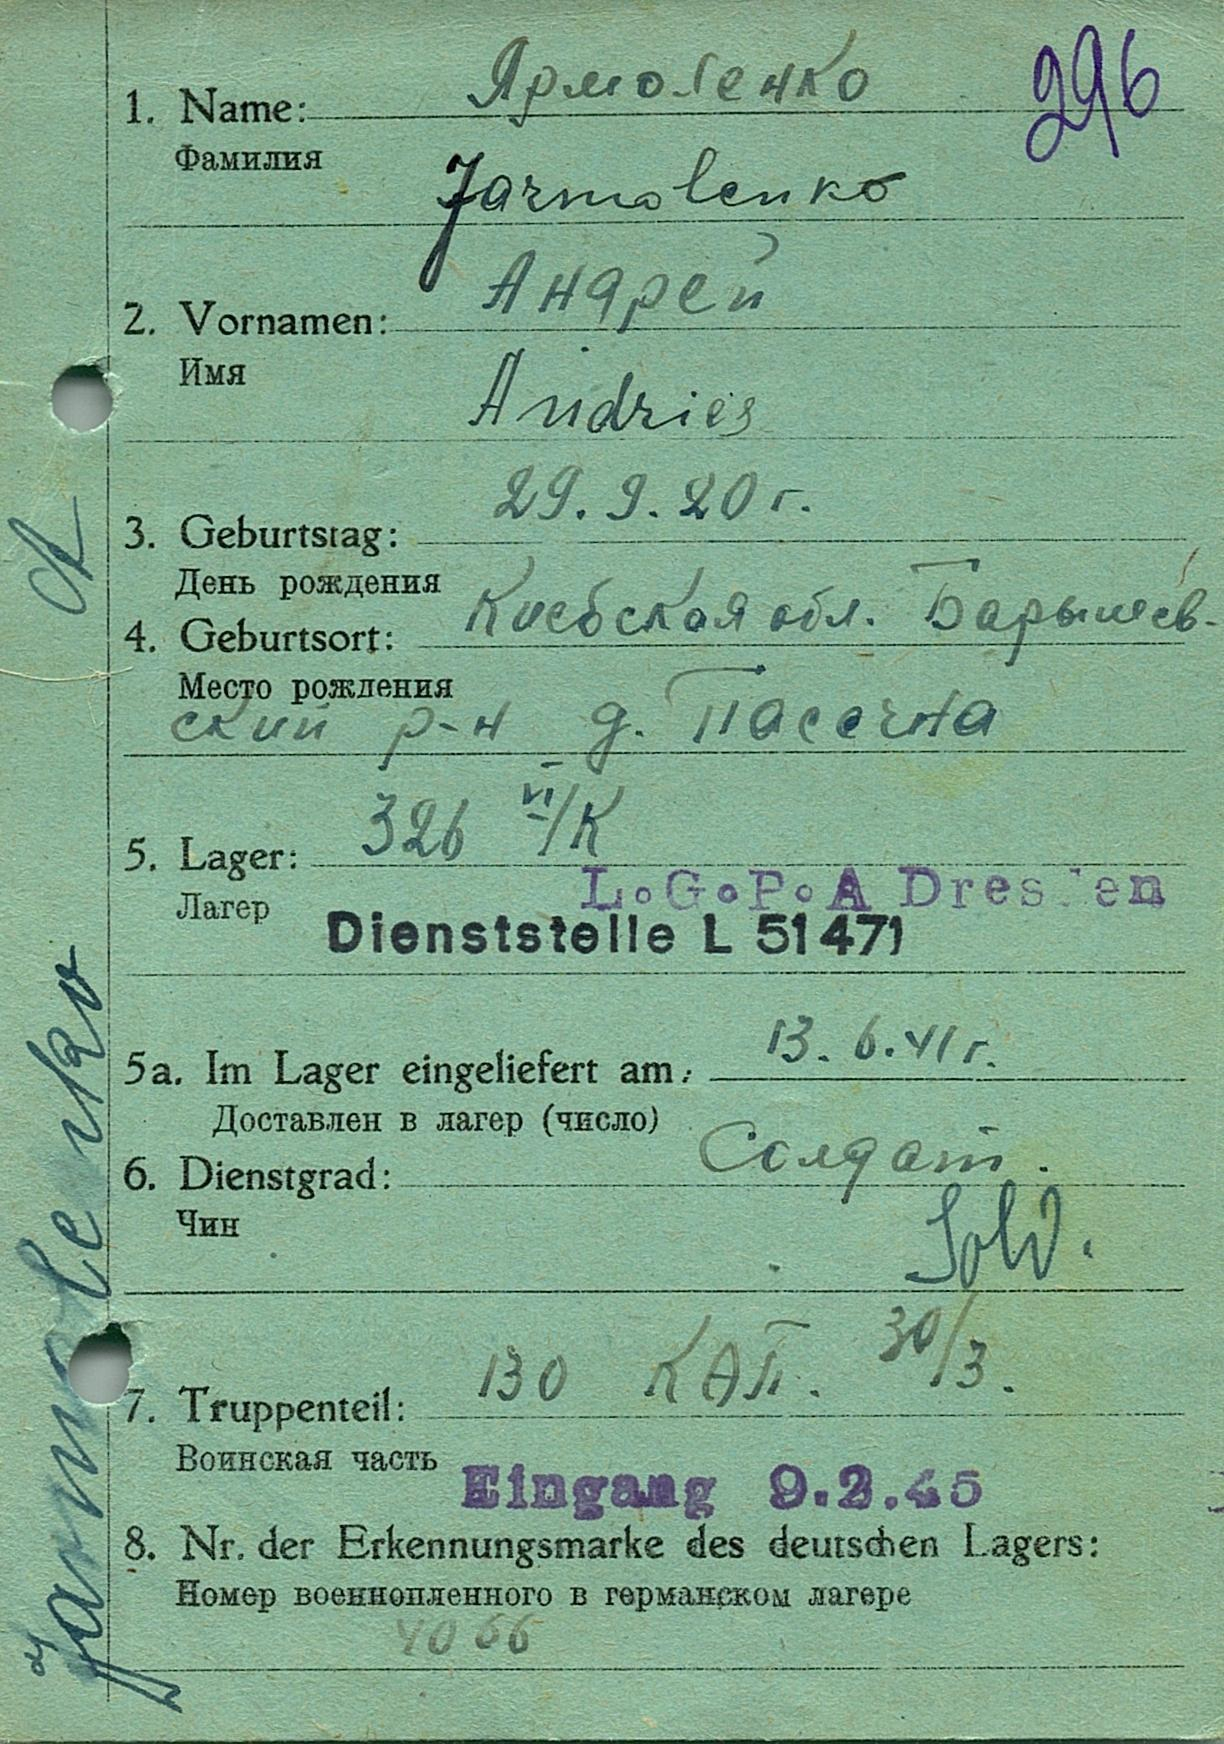 296
Ярмоленко
1. Name:
Фамилия
Jarmolenko
Андрей
2. Vornamen:
Имя
Andries
29.9.20 г.
3. Geburtstag:
День рождения
Киевская обл. Барышев-
4. Geburtsort:
Место рождения
ский р-н д. Пасечна
326 VI/K
5. Lager:
L.G.P.A Dresden
Лагер
Dienststelle L 51471
13.6.41 г.
5a. Im Lager eingeliefert am:
Доставлен в лагер (число)
Солдат.
6. Dienstgrad:
Чин
Sold.
130 КАП. 30/3.
7. Truppenteil:
Воинская часть
Eingang 9.2.45
8. Nr. der Erkennungsmarke des deutschen Lagers:
Номер военнопленного в германском лагере
4066
Jarmolenko A